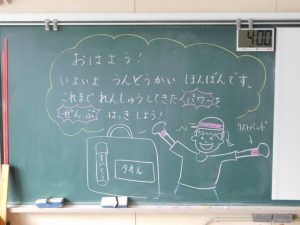 おはよう!
いよいよ うんどうかい ほんばんです。
これまで れんしゅうしてきた パワーを
ぜんぶ はっきしよう!
リストバンド
すいとう
タオル